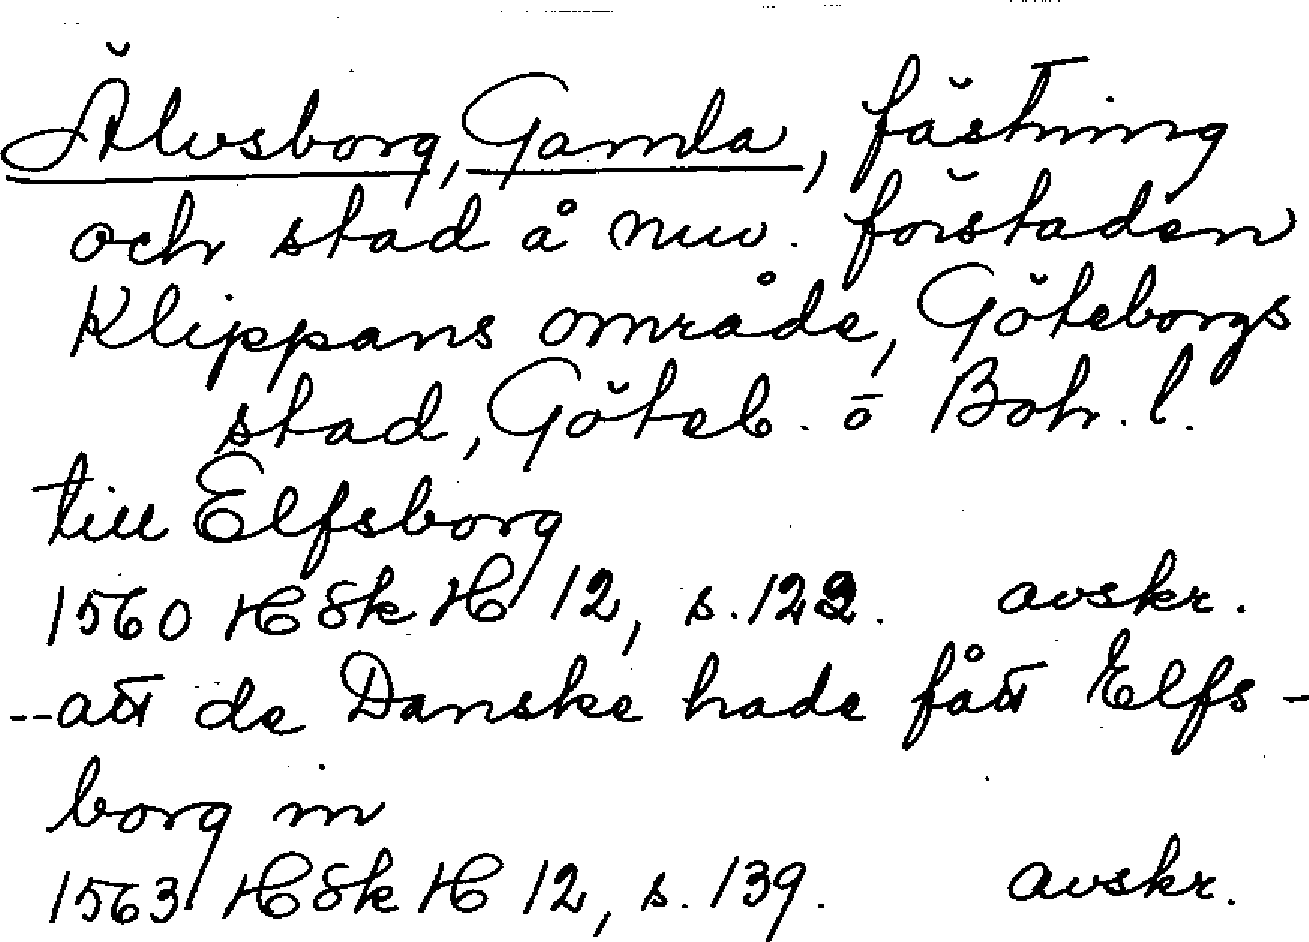 Älvsborg, Gamla, fästning
och stad å nuv. förstaden
Klippans område, Göteborgs
stad, Göteb. o Boh. l.
till Elfsborg
1560 HSk H 12, s. 122. avskr.
--att de Danske hade fått Elfs-
borg in
1563 HSk H 12, s. 139. avskr.